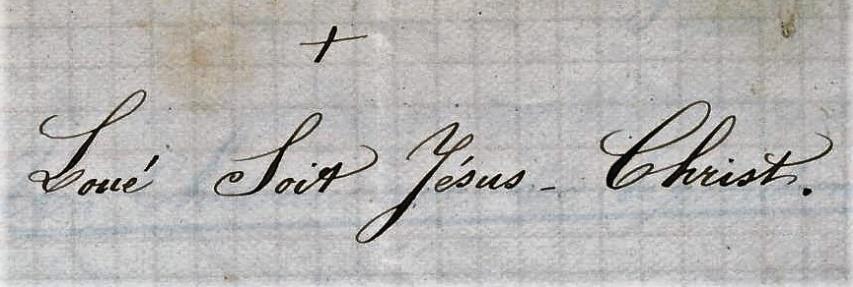 +
Loué Soit Jésus-Christ.